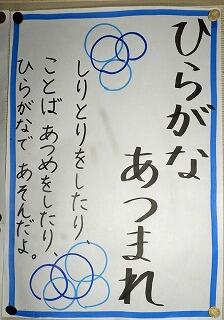 ひらがな
あつまれ
しりとりをしたり、
ことばあつめをしたり、
ひらがなで あそんだよ。